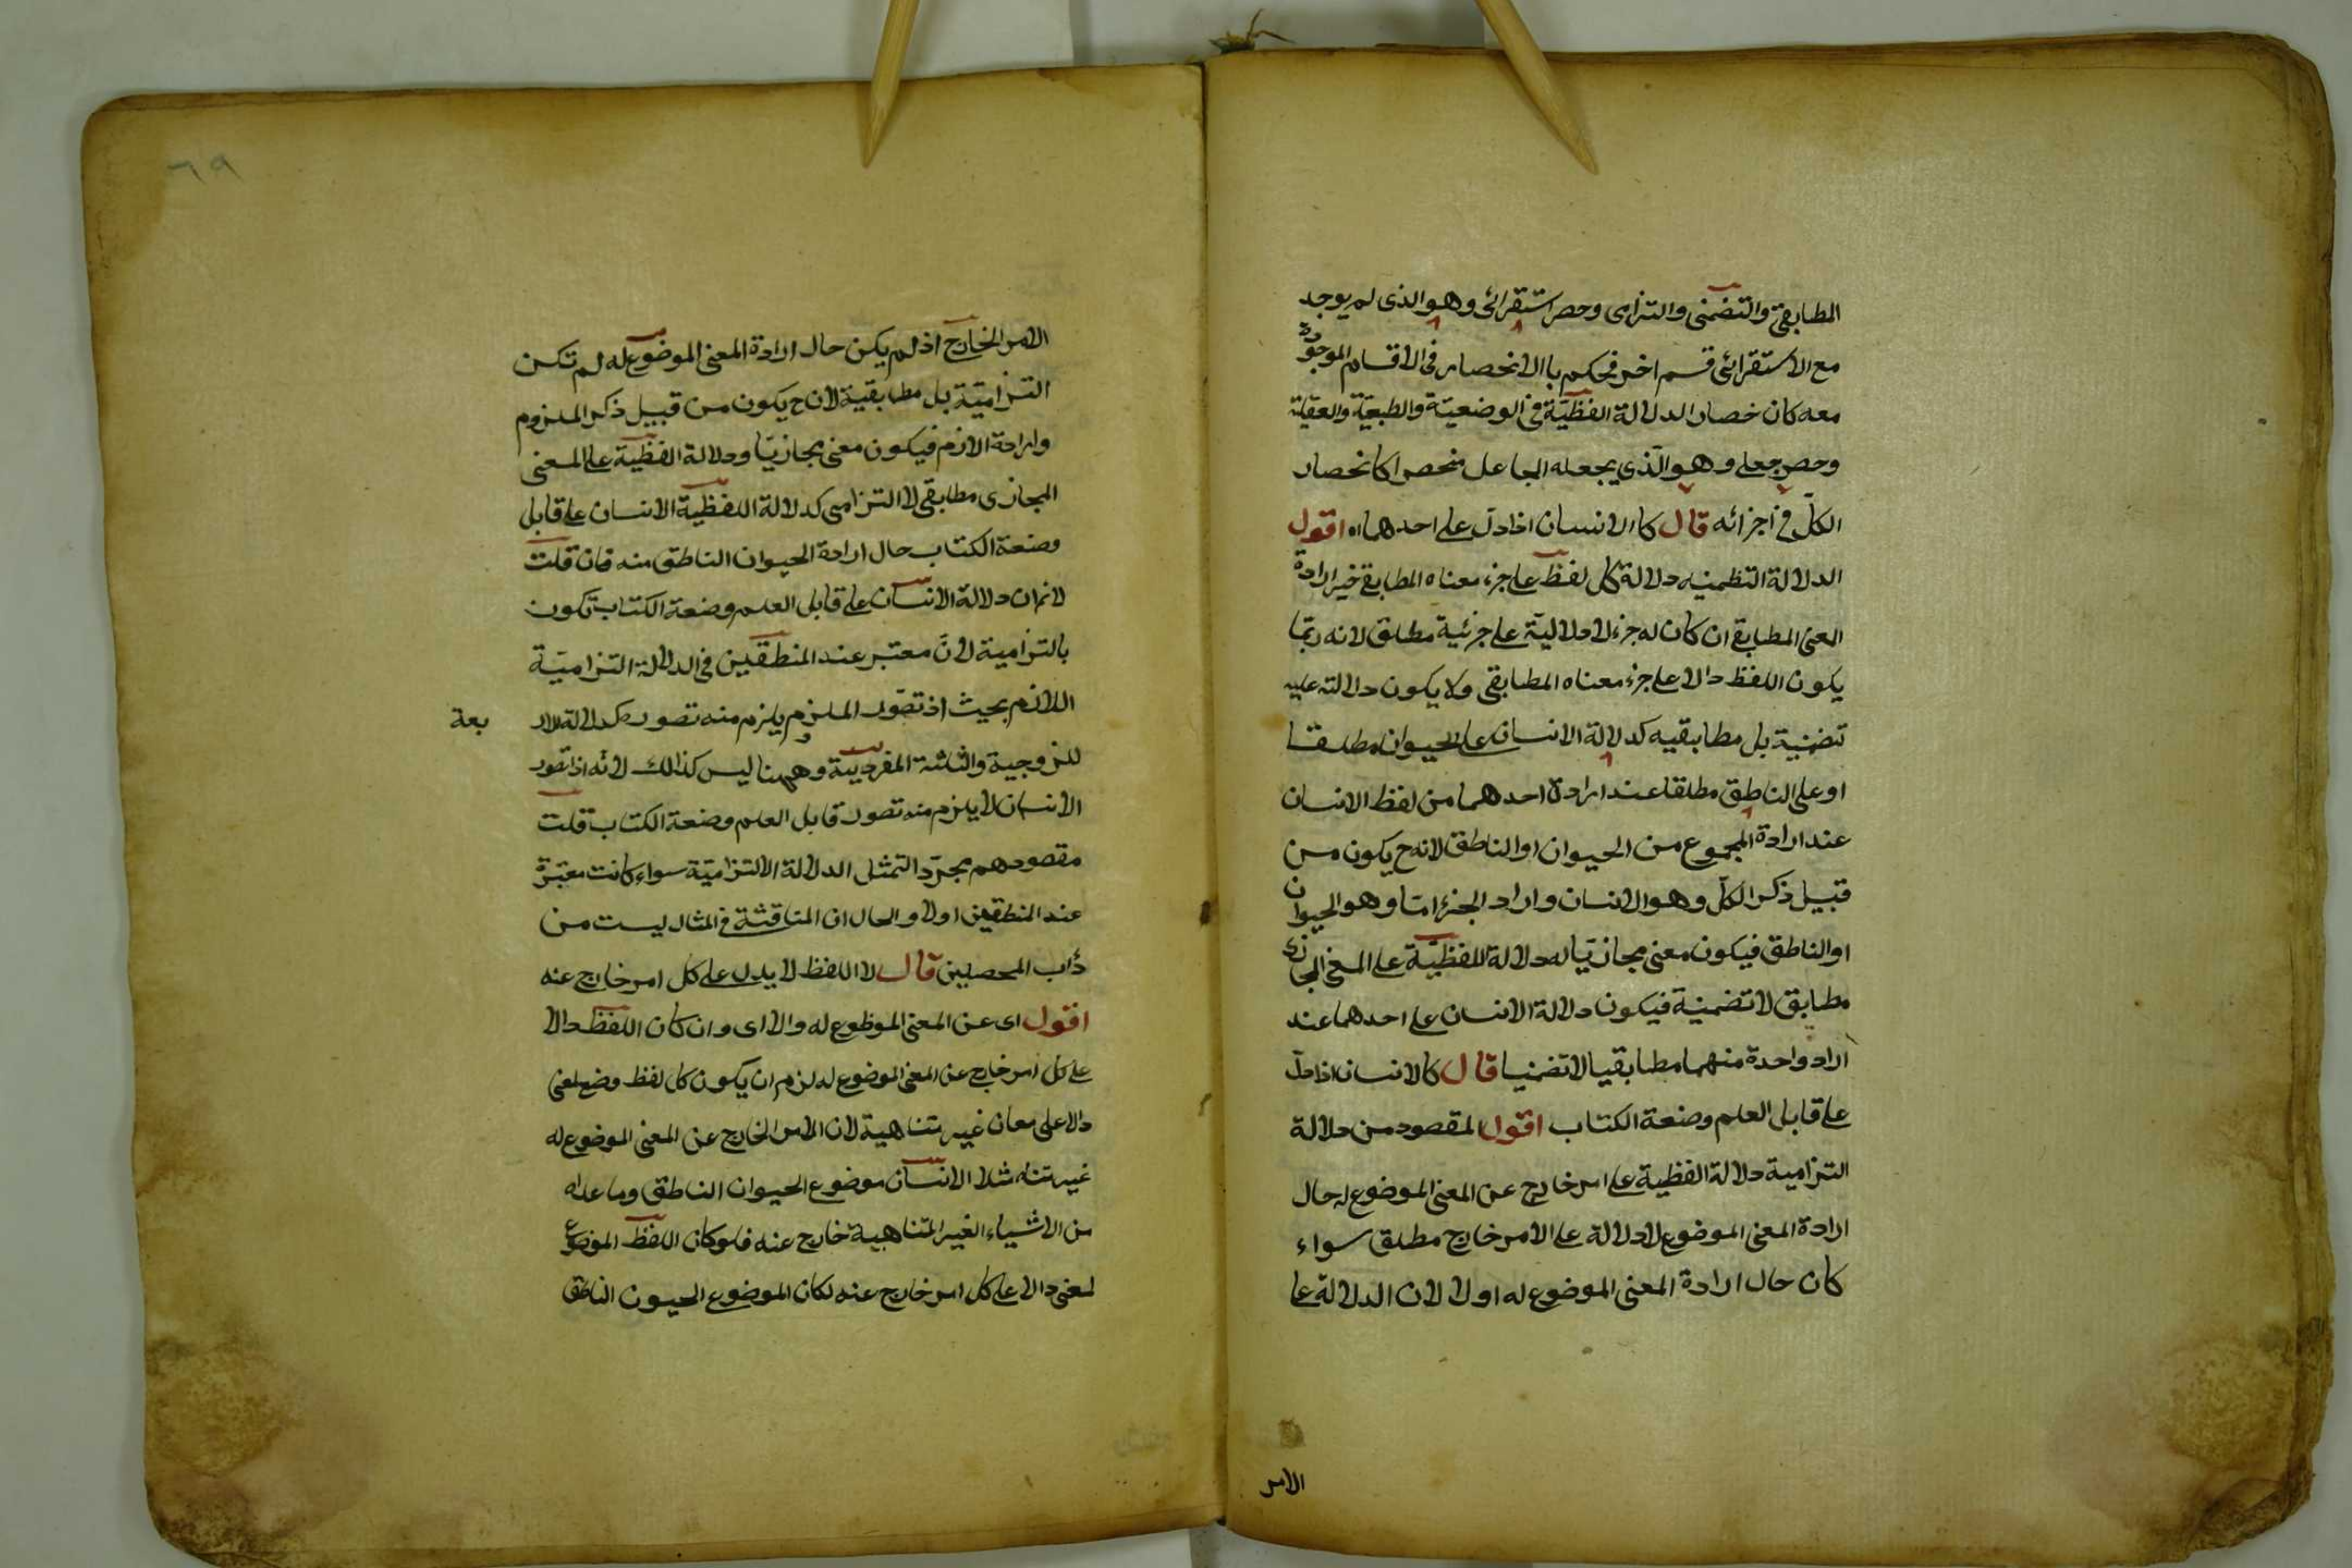 المطابقي والتضمني والتزامى وحصر استقرائى وهو الذى لم يوجد
مع الاستقرائى قسم اخر فحكم باالانحصار فى الاقسام الموجودة
معه كان خصار الدلالة الفظيّة فى الوضعيّة والطبعيّة والعقليّة
وحصر جعلى وهو الّذي يجعله الجاعل منحصرا كانحصار
الكلّ فى اجزائه قال كاالانسان اذا دلّ على احدهما اه اقول
الدلالة التظمنيه دلالة كل لفظ على جزء معناه المطابقي خير ارادة
العنى المطابقى ان كان له جزء لا دلاليّة على جزئية مطلق لانه ربّما
يكون اللفظ دالا على جزء معناه المطابقى ولا يكون دالالته عليه
تضمنية بل مطابقيه كدلالة الانسان على الحيوان مطلقا
او على الناطق مطلقا عند ارادة احدهما من لفظ الانسان
عند ارادة المجموع من الحيوان او الناطق لانه ح يكون من
قبيل ذكر الكلّ وهو الانسان واراد الجزء امّا وهو الحيوان
او الناطق فيكون معنى مجازيّا له دلالة للفظيّة على المعنى المجازى
مطابق لا تضمنية فيكون دلالة الانسان على احدهما عند
اراد واحدة منهما مطابقيا لا تضمنيا قال كالانسان اذا دلّ
على قابل العلم وصنعة الكتاب اقول المقصود من دلالة
التزامية دلالة الفظية على امر خارج عن المعنى الموضوع له حال
ارادة المعنى الموضوع لا دلالة على الامر خارج مطلق سواء
كان حال ارادة المعنى الموضوع له اولا لان الدلالة على
الامر
٦٩
الامر الخارج اذ لم يكن حال ارادة المعنى الموضوع له لم تكن
التزاميّة بل مطابقية لان ح يكون من قبيل ذكر الملزوم
وارادة الازم فيكون معنى مجازيّا ودلالة الفظيّة على المعنى
المجازى مطابقى لا التزامى كدلالة اللفظيّة الانسان على قابل
وصنعة الكتاب حال ارادة الحيوان الناطق منه فان قلت
لانم ان دلالة الانسان على قابل العلم وضعة الكتاب تكون
بالتزامية لانّ معتبر عند المنطقين فى الدلالة التزاميّة
اللازم بحيث اذ تصوّر الملزوم يلزم منه تصوره كدلالة للار
بعة
للزوجية والثلثة المفرديّة وههنا ليس كذالك لانّه اذا تصور
الانسان لا يلزم منه تصور قابل العلم وضعة الكتاب قلت
مقصودهم بجرّد التمثل الدلالة الالتزاميّة سواء كانت معتبرة
عند المنطقين اولا والحال ان المناقشة فى المثال ليست من
دأب المحصلين قال لا اللفظ لا يدل على كل امر خارج عنه
اقول اى عن المعنى الموظوع له والا اى وان كان اللفظ دالا
على كل امر خارج عن المعنى الموضوع له لزم ان يكون كل لفظ وضع لمعنى
دالا على معان غير متناهية لان الامر الخارج عن المعنى الموضوع له
غير متناه مثلا الانسان موضوع الحيوان الناطق وما عداه
من الاشياء الغير المتناهية خارج عنه فلو كان اللفظ الموضوع
لمعنى دالا على كل امر خارج عنه لكان الموضوع الحيون الناطق